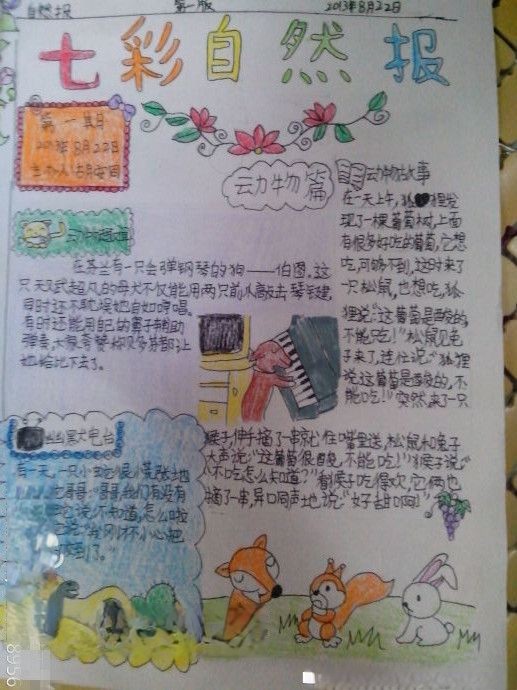 自然报 第一版 2013年8月22日
七彩自然报
第一期
2013年8月22日
动物篇
动物故事
在一天上午,狐狸发
现了一棵葡萄树,上面
有很多好吃的葡萄,它想
吃,可够不到,这时来了
一只松鼠,也想吃,狐
狸说:“这葡萄是酸的,
不能吃!”松鼠见兔
子来了,连忙说:“狐狸
说这葡萄是酸的,不
能吃!”突然来了一只
猴子伸手摘了一串就往嘴里送,松鼠和兔子
大声说:“这葡萄很酸,不能吃!”猴子说:“
不吃怎么知道?”看猴子吃得欢,它俩也
摘了一串,异口同声地说:“好甜啊!”
在芬兰有一只会弹钢琴的狗——伯图。这
只天才超凡的母犬不仅能用两只前爪敲击琴键,
同时还不耽误她自如哼唱。
有时还能用自己的鼻子辅助
弹奏,大概音赞如贝多芬都让
她给比下去了。
幽默大电台
有一天,一只小蛇很慌张地
哥哥:“哥哥我们有没有
不知道,怎么啦
“我刚才不小心把
8956